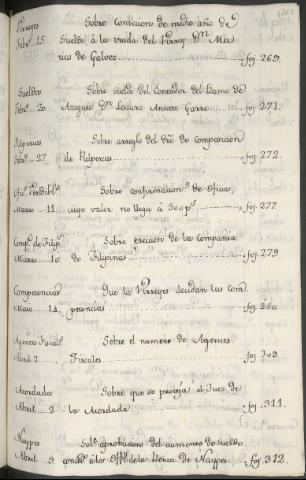 Virreyes Sobre concesion de medio año de
Febro. 15 Sueldo á la viuda del Virrey Dn. Ma
tias de Galvez foj. 269.
Sueldos. Sobre sueldo del Contador del Ramo de
Febro. 20 Dn. Lazaro foj. 271.
Alperxas Sobre arreglo del dro. de composicion
Febro. 27 de Pulperias foj. 272.
Sobre confirmacions. de oficios,
Marzo 11. cuyo valor no llega á 500 ps. foj. 277
Comp. de Filips. Sobre ereccion de la Compañia
Marzo 10 de Filipinas foj. 279
Competencias Que los Virreyes decidan las Com
Marzo 14. petencias foj. 280
Agentes Fiscals. Sobre el numero de Agentes
Abril 2 Fiscales foj. 309.
Acordada Sobre que se proteja al Juez de
Abril 2 la Acordada foj. 311.
Naypes Sobe. aprobacion del aumento de sueldo
Abril 9. condo. á los Offs. de la Renta de Naypes foj. 312.